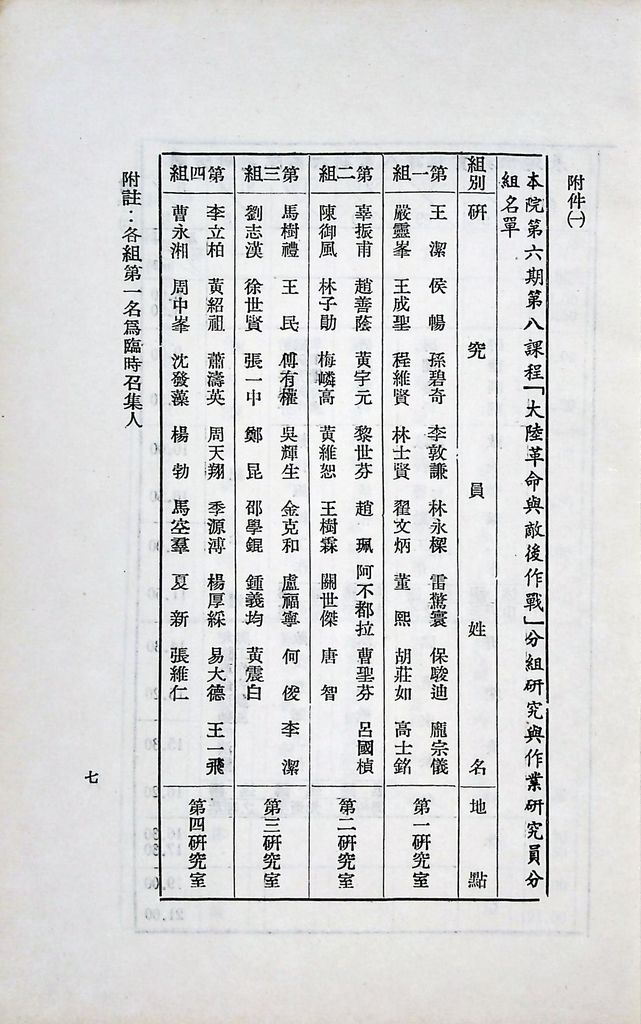 附件㈠
本院第六期第八課程「大陸革命與敵後作戰」分組研究與作業研究員分
組名單
組別 研究員姓名 地點
第一組
王潔 侯暢 孫碧奇 李敦謙 林永樑 雷驚寰 保駿迪 龐宗儀
嚴靈峯 王成聖 程維賢 林士賢 翟文炳 董熙 胡莊如 高士銘
第一研究室
第二組
辜振甫 趙善蔭 黃宇元 黎世芬 趙珮 阿不都拉 曹聖芬 呂國楨
陳御風 林子勛 梅嶙高 黃維恕 王樹霖 關世傑 唐智
第二研究室
第三組
馬樹禮 王民 傅有權 吳輝生 金克和 盧福寧 何俊 李潔
劉志漢 徐世賢 張一中 鄭昆 邵學錕 鍾義均 黃震白
第三研究室
第四組
李立柏 黃紹祖 蕭濤英 周天翔 季源溥 楊厚綵 易大德 王一飛
曹永湘 周中峯 沈發藻 楊勃 馬空羣 夏新 張維仁
第四研究室
附註：各組第一名爲臨時召集人
七